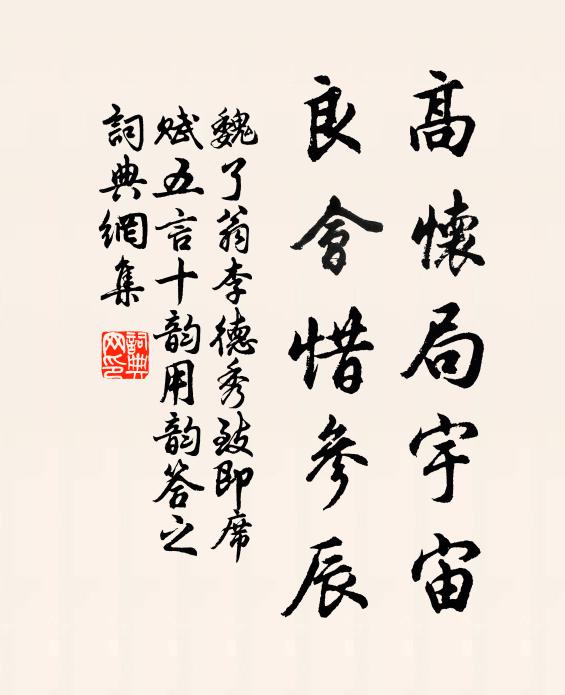 高懷局宇宙
良會惜參辰
魏了翁李德秀致即席
賦五言十韵用韵答之
詞典網集
詞典網印